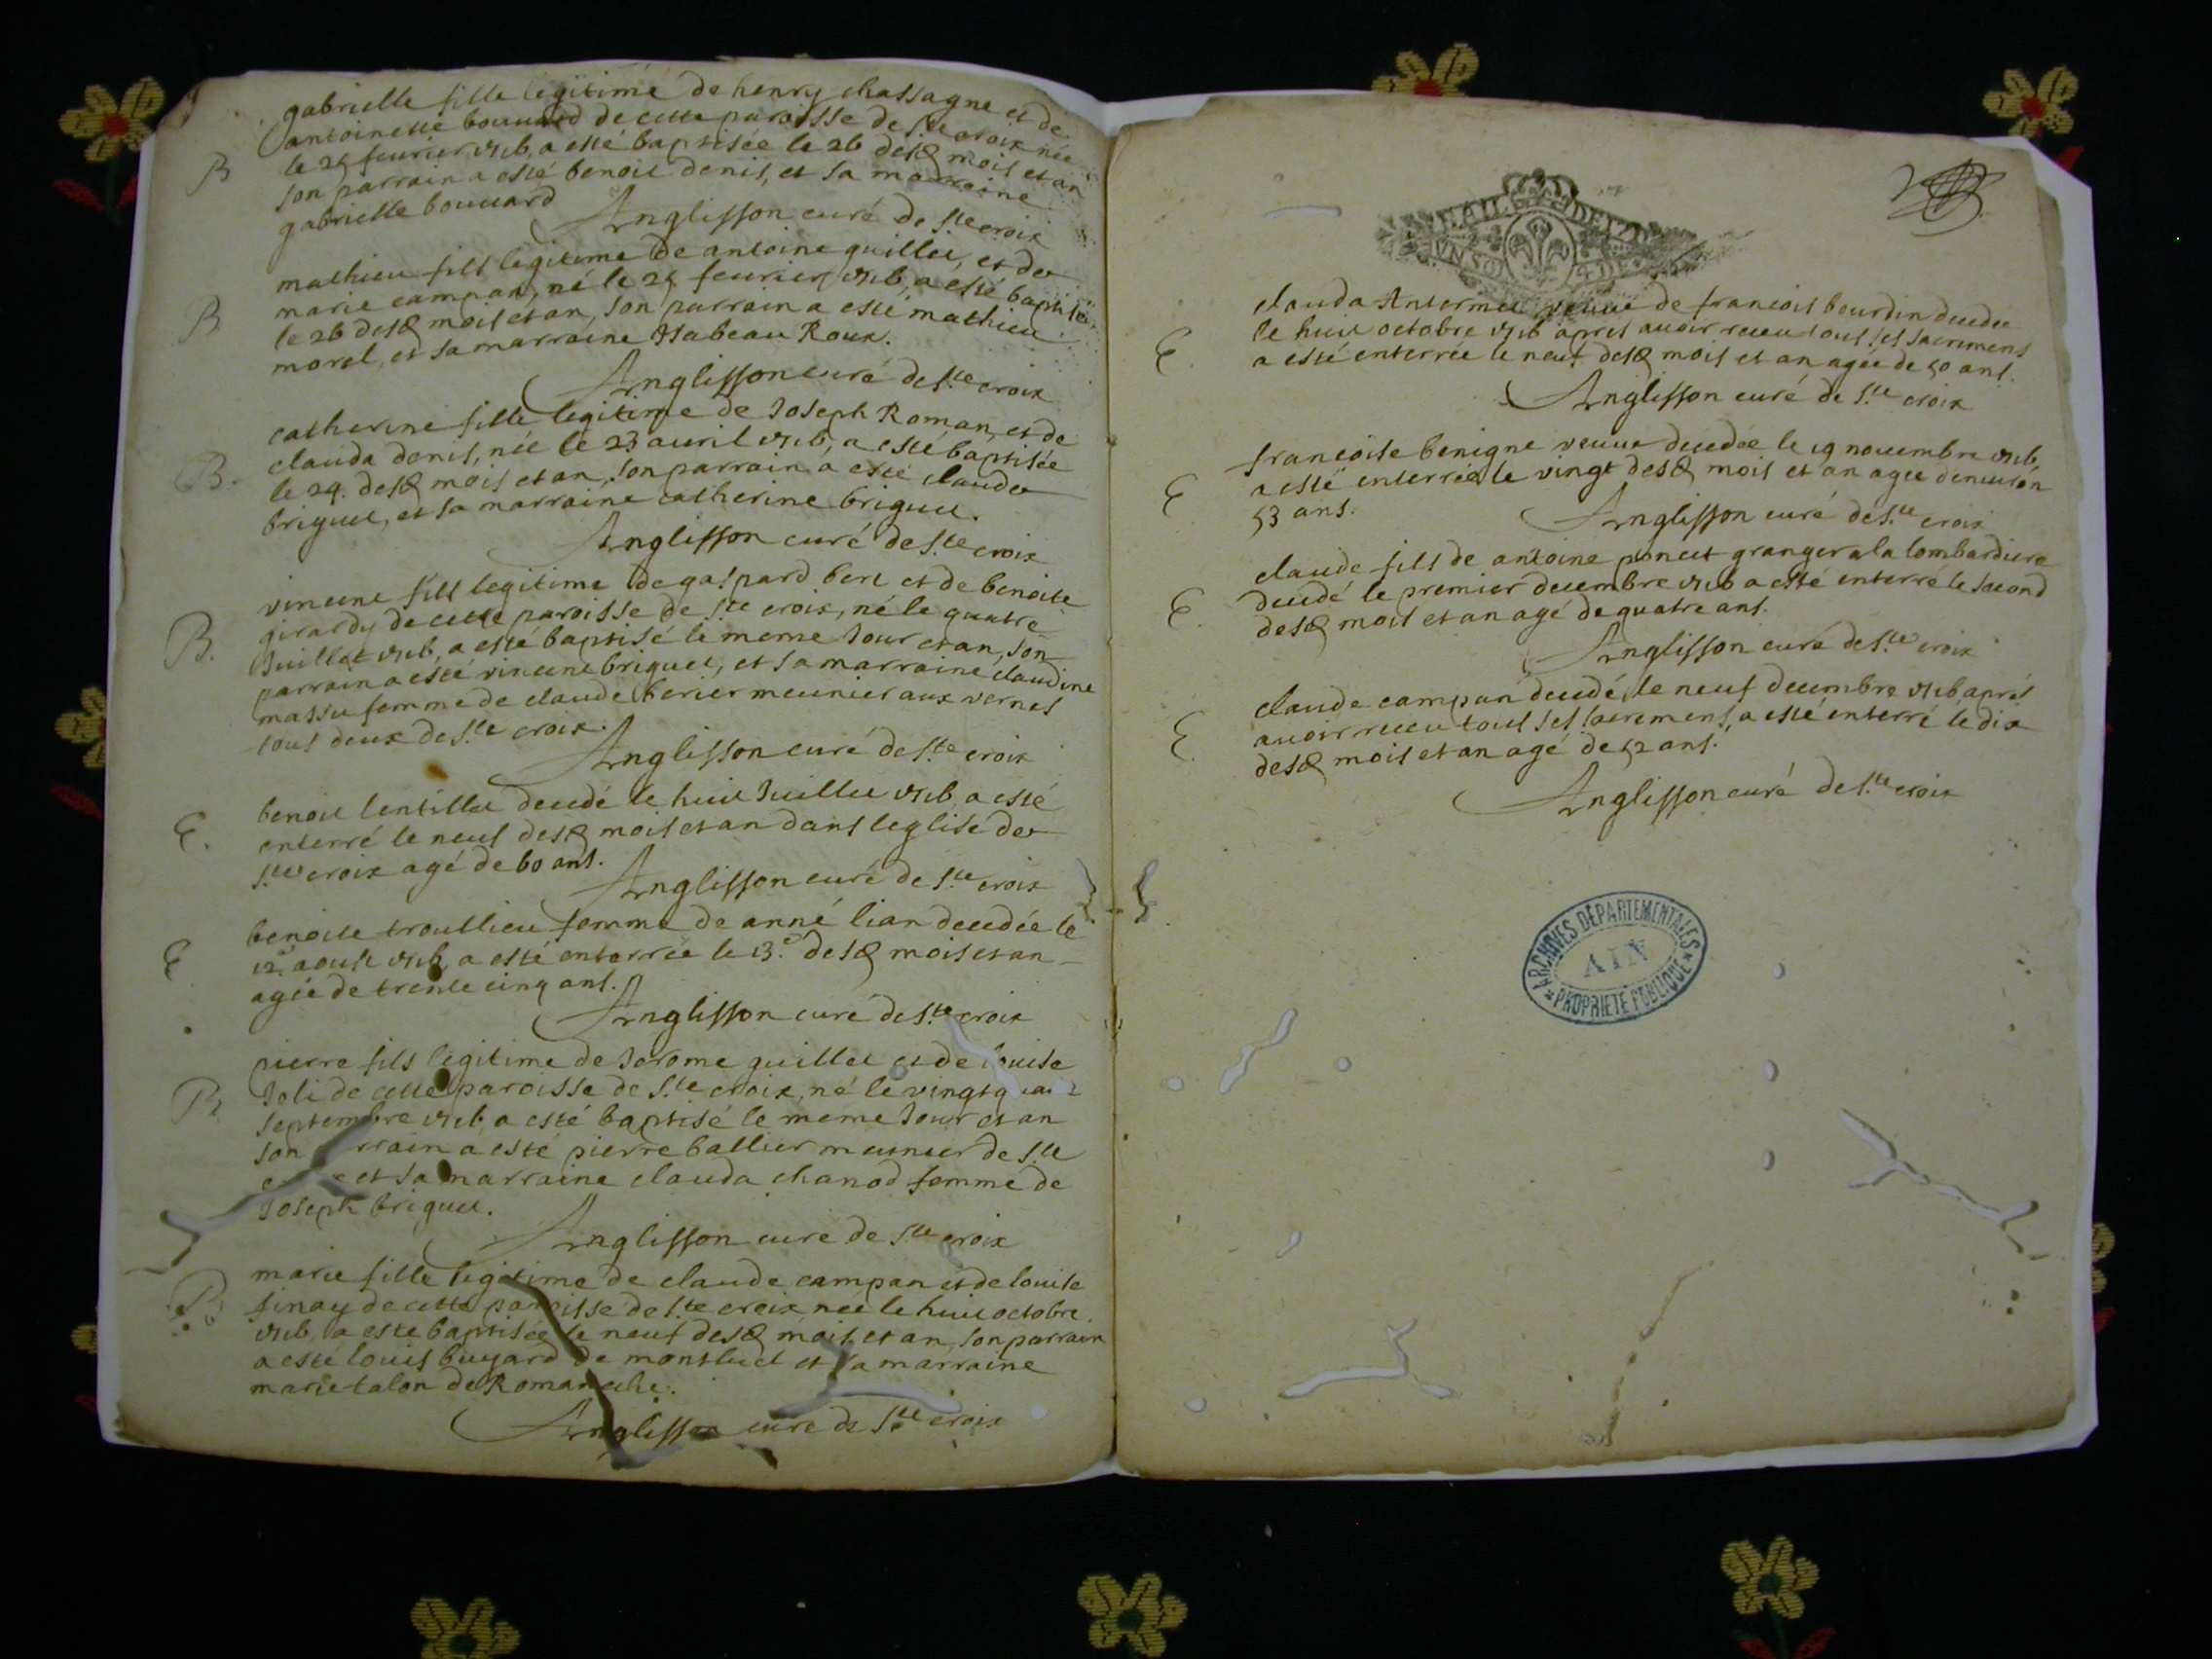 gabrielle fille legitime de henry chassagne et de
antoinette bouuard de cette paroisse de Ste croix née
le 25 feurier 1716, a esté baptisée le 26 desd mois et an
son parrain a esté benoit denis, et sa marraine
gabrielle bouuard
Anglisson curé de Ste croix
B
mathieu fils legitime de antoine guillet, et de
marie campan, né le 25 feurier 1716, a esté baptisé
le 26 desd mois et an, son parrain a esté mathieu
morel, et sa marraine Isabeau Roux.
Anglisson curé de Ste croix
B
catherine fille legitime de Joseph Roman, et de
clauda denis, née le 23 auril 1716, a esté baptisée
le 24. desd mois et an, son parrain a esté claude
briguet, et sa marraine catherine briguet.
Anglisson curé de Ste croix
B.
vincent fils legitime de gaspard bert et de benoite
girardy de cette paroisse de Ste croix, né le quatre
Juillet 1716, a esté baptisé le meme Jour et an, son
parrain a esté vincent briguet, et sa marraine claudine
massu femme de claude berier meunier aux vernes
tous deux de Ste croix.
Anglisson curé de Ste croix
B.
benoit lentillet decedé le huit Juillet 1716, a esté
enterré le neuf desd mois et an dans leglise de
Ste croix agé de 60 ans.
Anglisson curé de Ste croix
E.
benoite troullieu femme de anné lian decedée le
12e aoust 1716, a esté enterrée le 13e desd mois et an
agée de trente cinq ans.
Anglisson curé de Ste croix
E
pierre fils legitime de Jerome guillet et de louise
Joli de cette paroisse de Ste croix, né le vingt
septembre 1716, a esté baptisé le meme Jour et an
son a esté pierre ballier meunier de Ste
et sa marraine clauda chanod femme de
Joseph briguet.
Anglisson curé de Ste croix
B
marie fille legitime de claude campan et de louise
finay de cette paroisse de Ste croix née le huit octobre
1716, a esté baptisée le neuf desd mois et an, son parrain
a esté louis buyard de montluel et sa marraine
marie talon de Romaneche.
Anglisson curé de Ste croix
B
clauda Antermet veuue de francois bourdin decedée
le huit octobre 1716 apres auoir receu tous ses sacremens
a esté enterrée le neuf desd mois et an agée de 50 ans.
Anglisson curé de Ste croix
E.
francoise benigne veuue decedée le 19 nouembre 1716,
a esté enterrée le vingt desd mois et an agée denuiron
53 ans.
Anglisson curé de Ste croix
E
claude fils de antoine poncet granger a la lombardiere
decedé le premier decembre 1716 a esté enterré le second
desd mois et an agé de quatre ans.
Anglisson curé de Ste croix
E.
claude campan decedé, le neuf decembre 1716 aprés
auoir receu tous ses sacremens, a esté enterré le dix
desd mois et an agé de 52 ans.
Anglisson curé de Ste croix
E.
ARCHIVES DEPARTEMENTALES
AIN
* PROPRIETE PUBLIQUE *